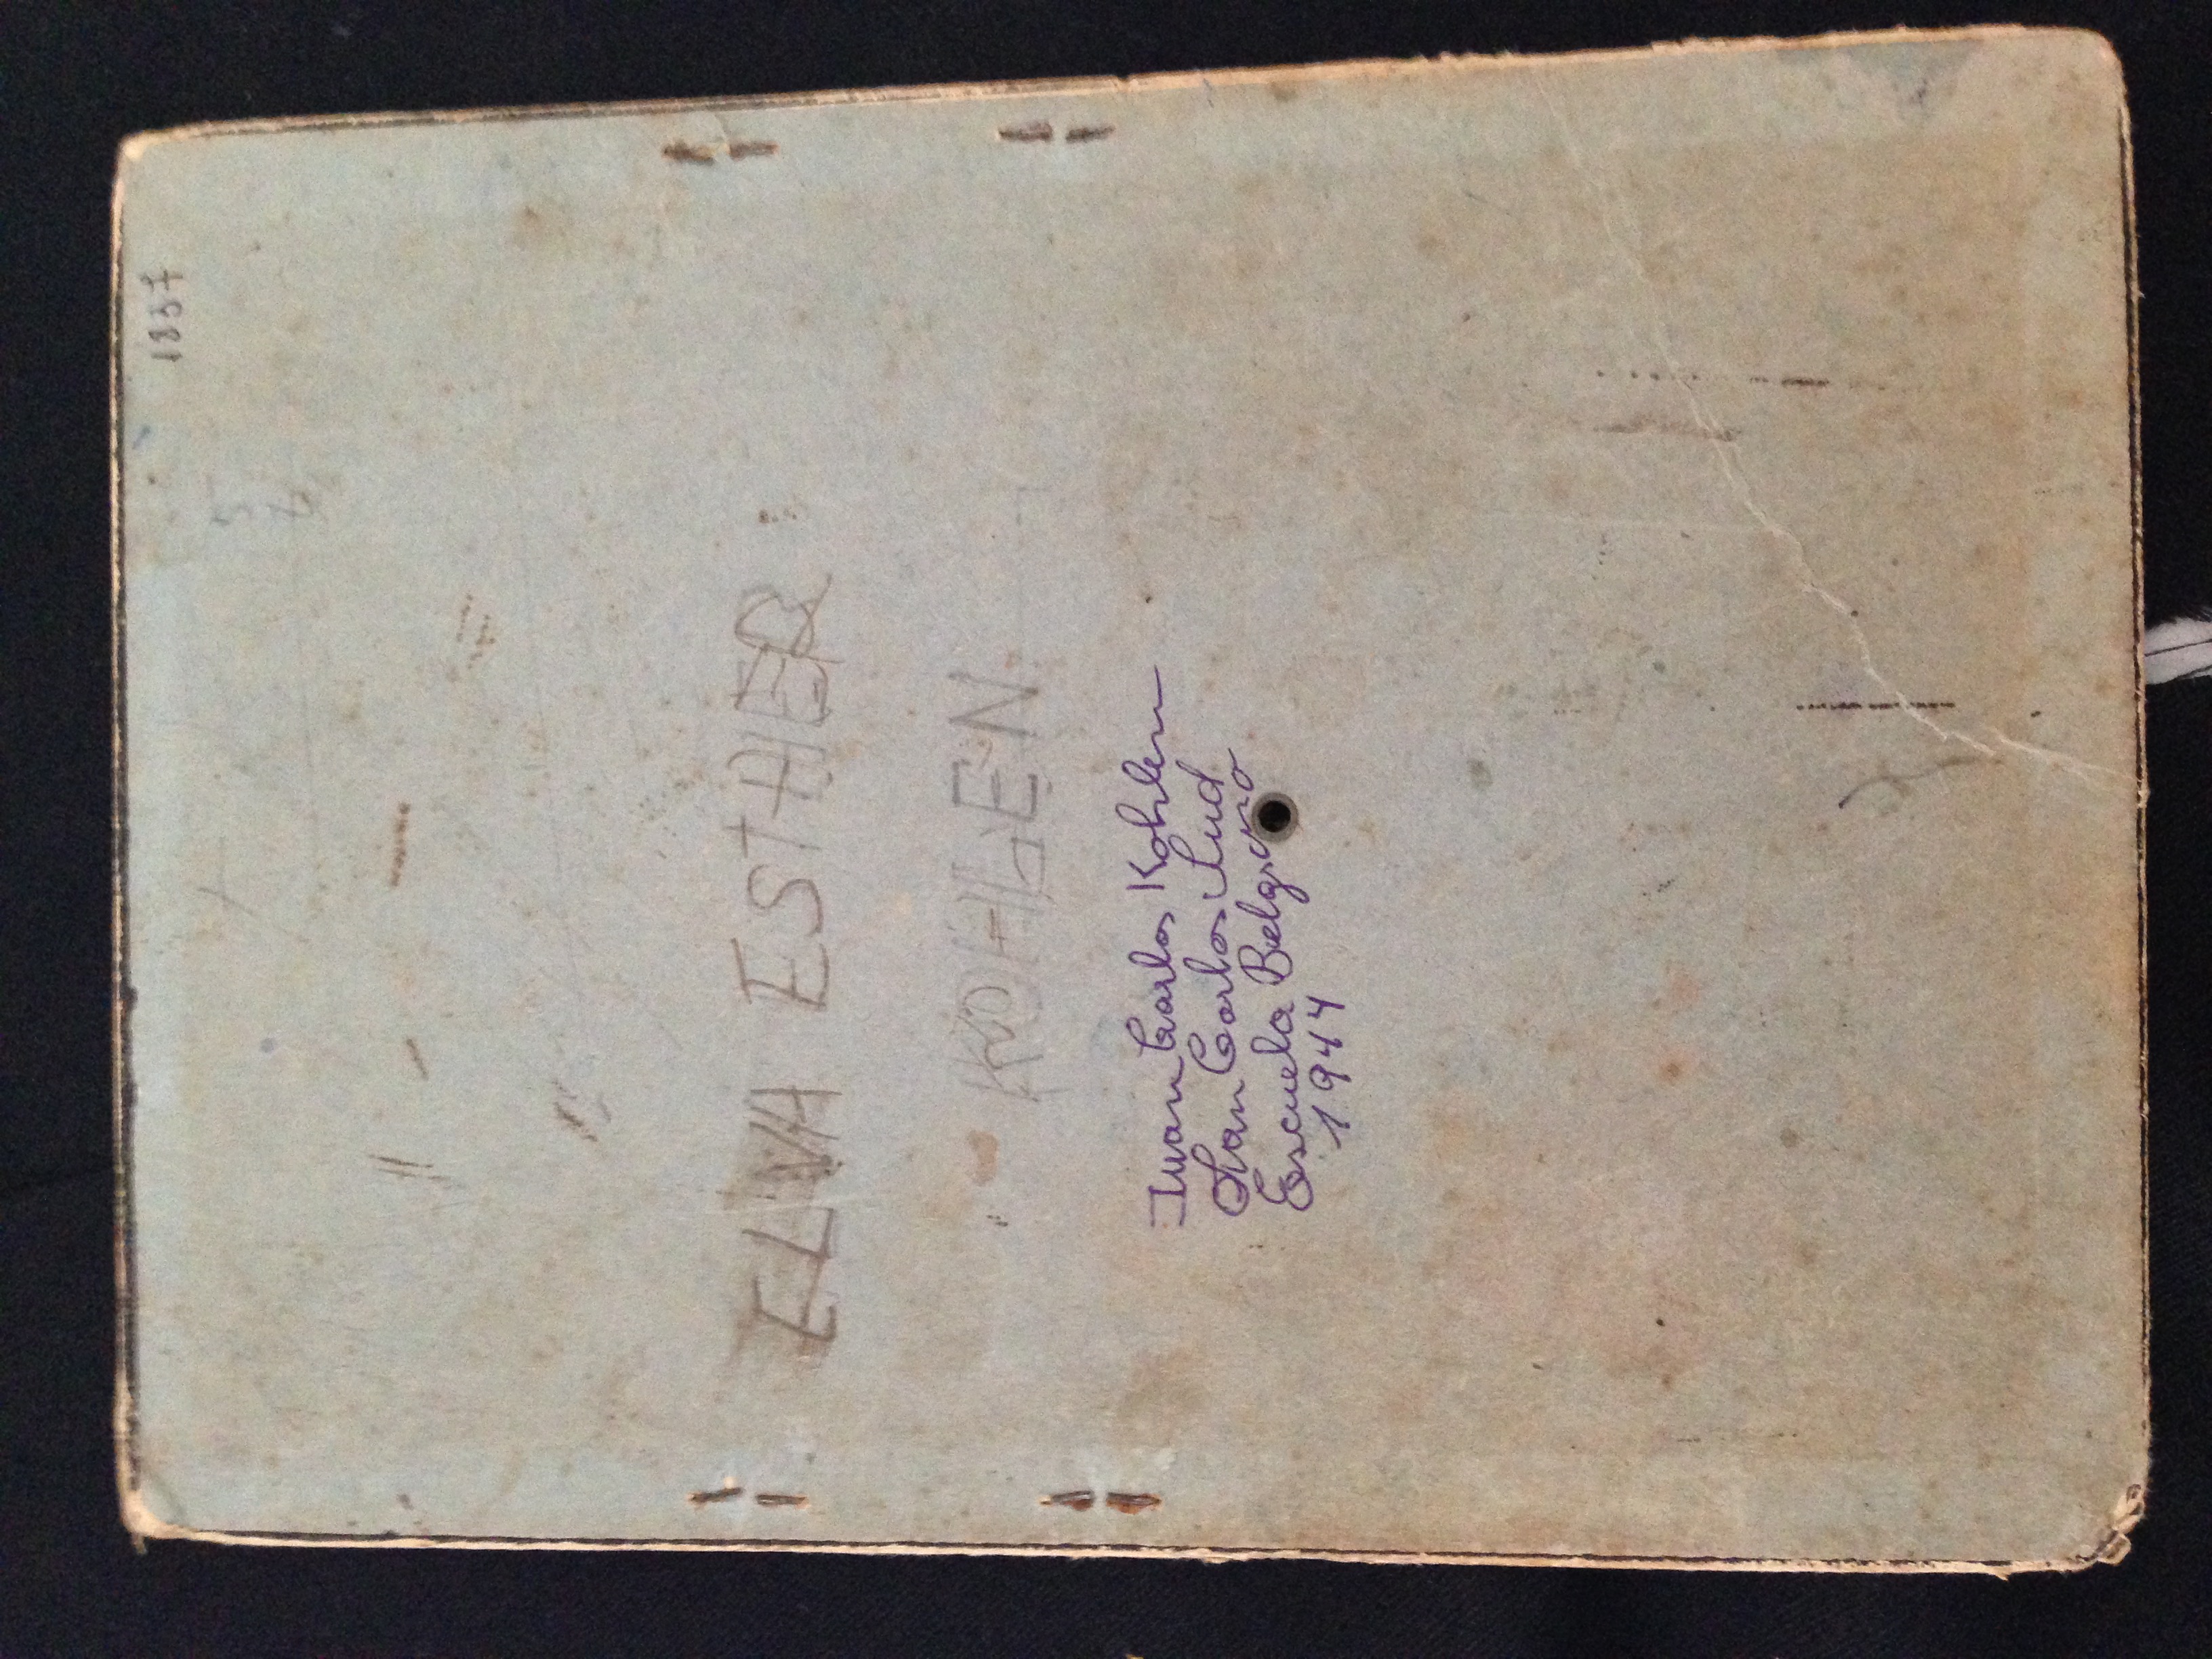 1837
ELVA ESTHER
KOHLEN
Juan Carlos Kohlen
San Carlos Sud
Escuela Belgrano
1944